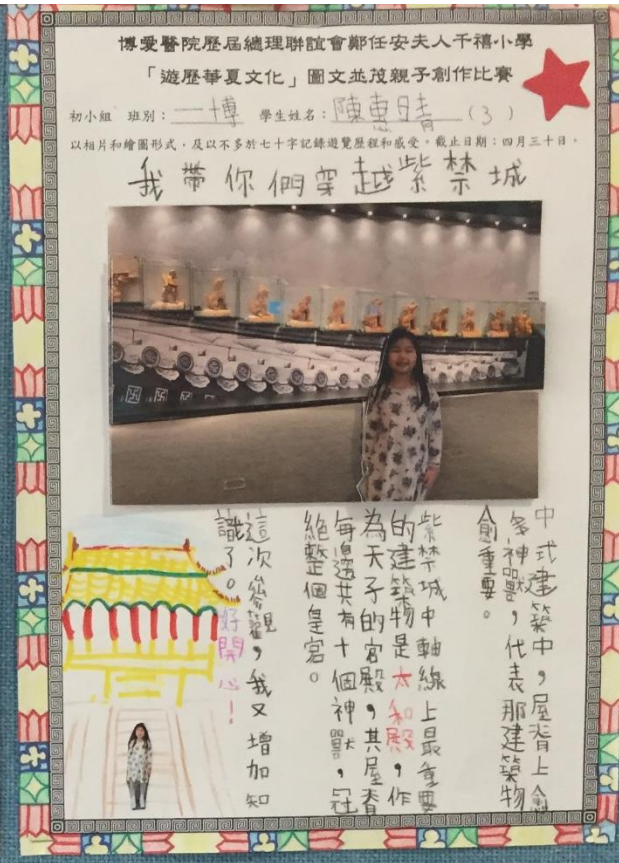 博愛醫院歷屆總理聯誼會鄭任安夫人千禧小學
「遊歷華夏文化」圖文並茂親子創作比賽
初小組 班別：一博 學生姓名：陳惠晴（3）
以相片和繪圖形式，及以不多於七十字記錄遊覽歷程和感受。截止日期：四月三十日。
我帶你們穿越紫禁城
中式建築中，屋脊上愈
多神獸，代表那建築物
愈重要。
紫禁城中軸線上最重要
的建築物是太和殿，作
為天子的宮殿，其屋脊
每邊共有十個神獸，冠
絕整個皇宮。
這次參觀，我又增加知
識了。好開心！